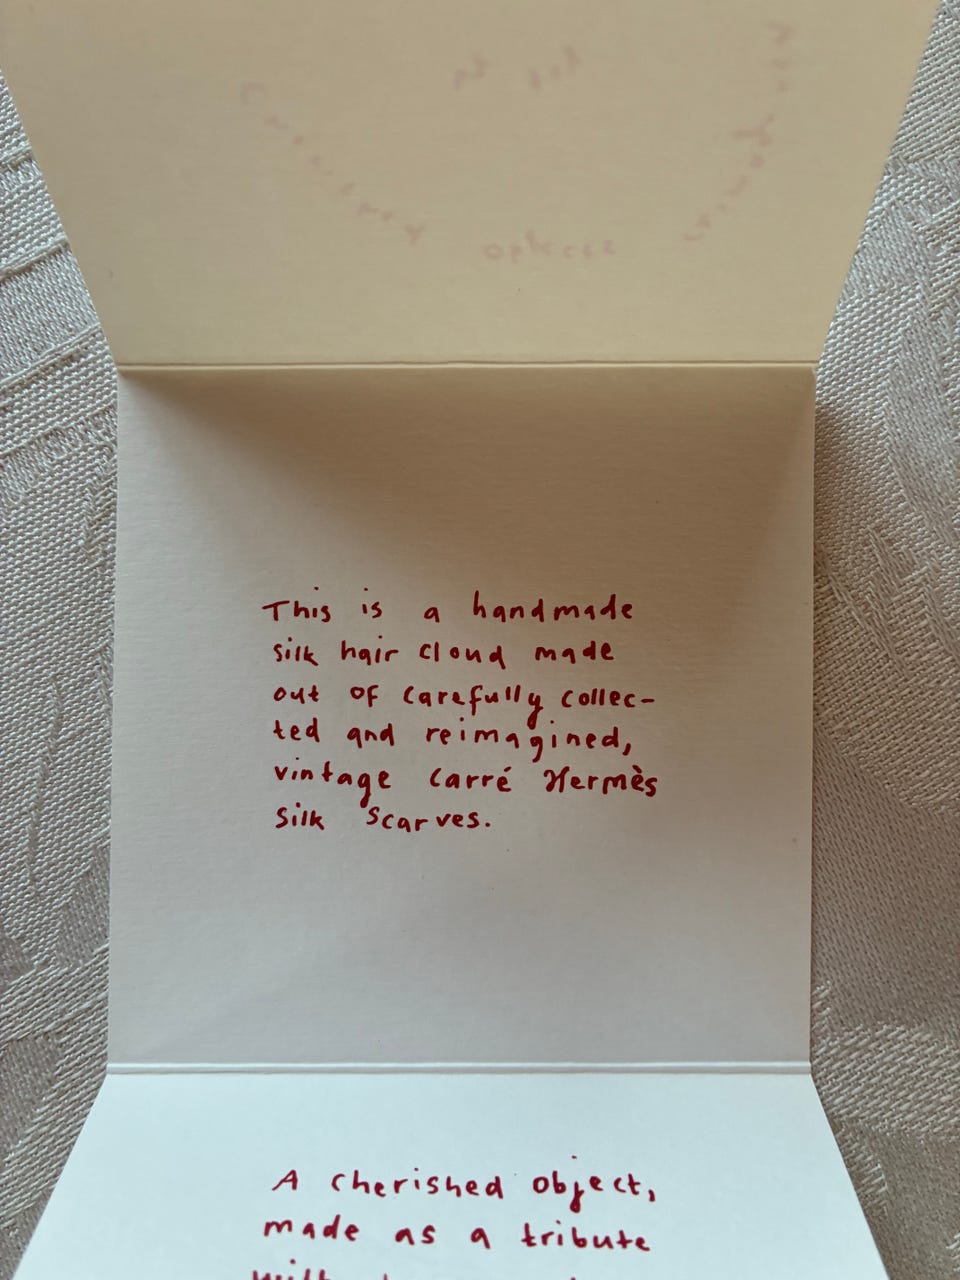 This is a handmade
silk hair cloud made
out of carefully collec-
ted and reimagined,
vintage carré Hermès
silk scarves.
A cherished object,
made as a tribute